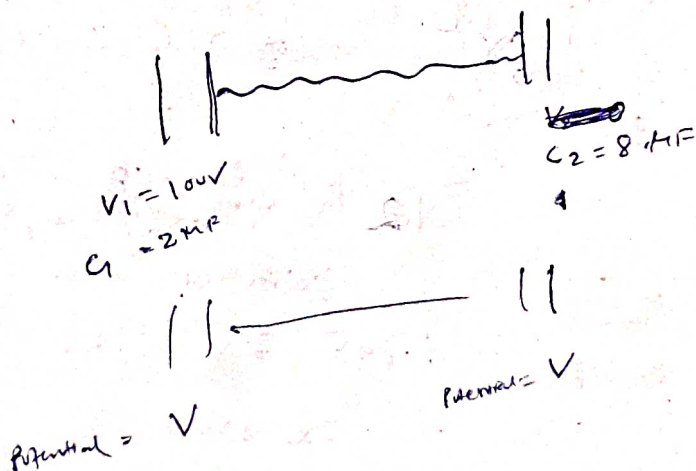 V1 = 100V
C1 = 2MF
C2 = 8 MF
Potential = V
Potential = V